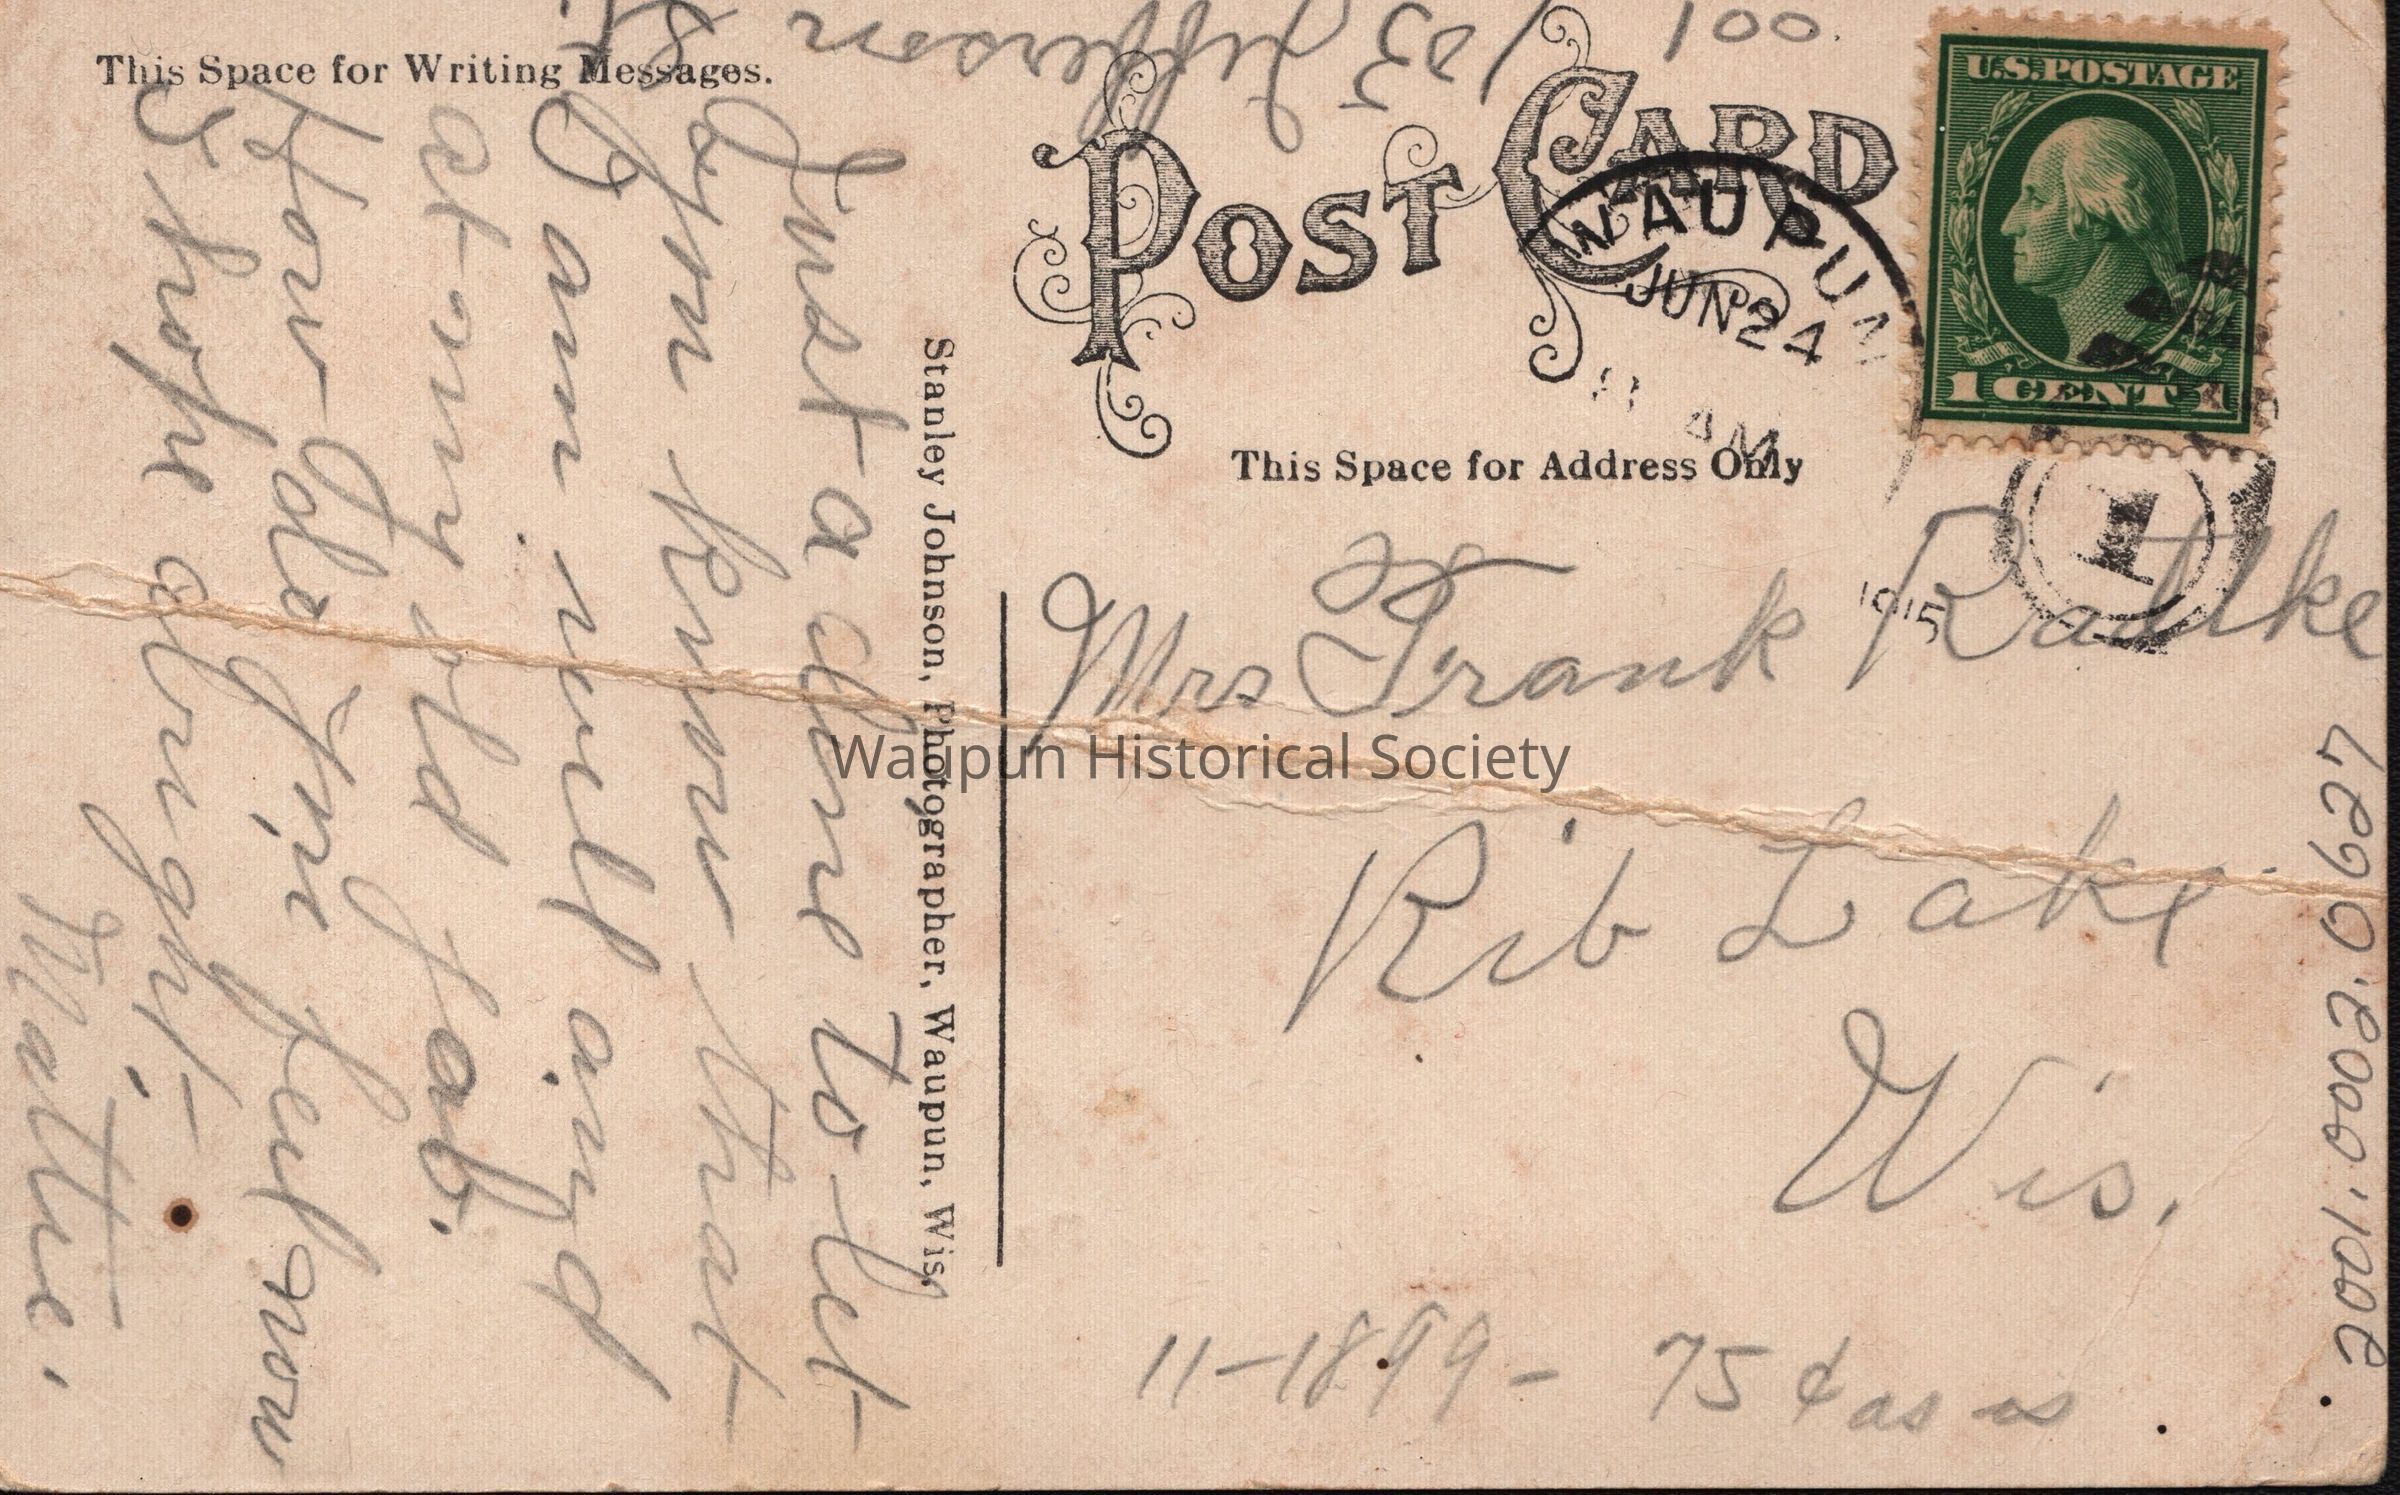 This Space for Writing Messages.
POST CARD
U.S. POSTAGE
1 CENT 1
WAUPUN
JUN 24
AM
1915
1
This Space for Address Only
Mrs Frank Radtke
Rib Lake
Wis.
Just a line to let
you know that
I am well and
at my old job.
How do you feel now
I hope alright.
Mattie.
155 Jefferson
100.
Stanley Johnson, Photographer, Waupun, Wis.
Waupun Historical Society
11-1899- 75¢ as is
2001.0003.0627